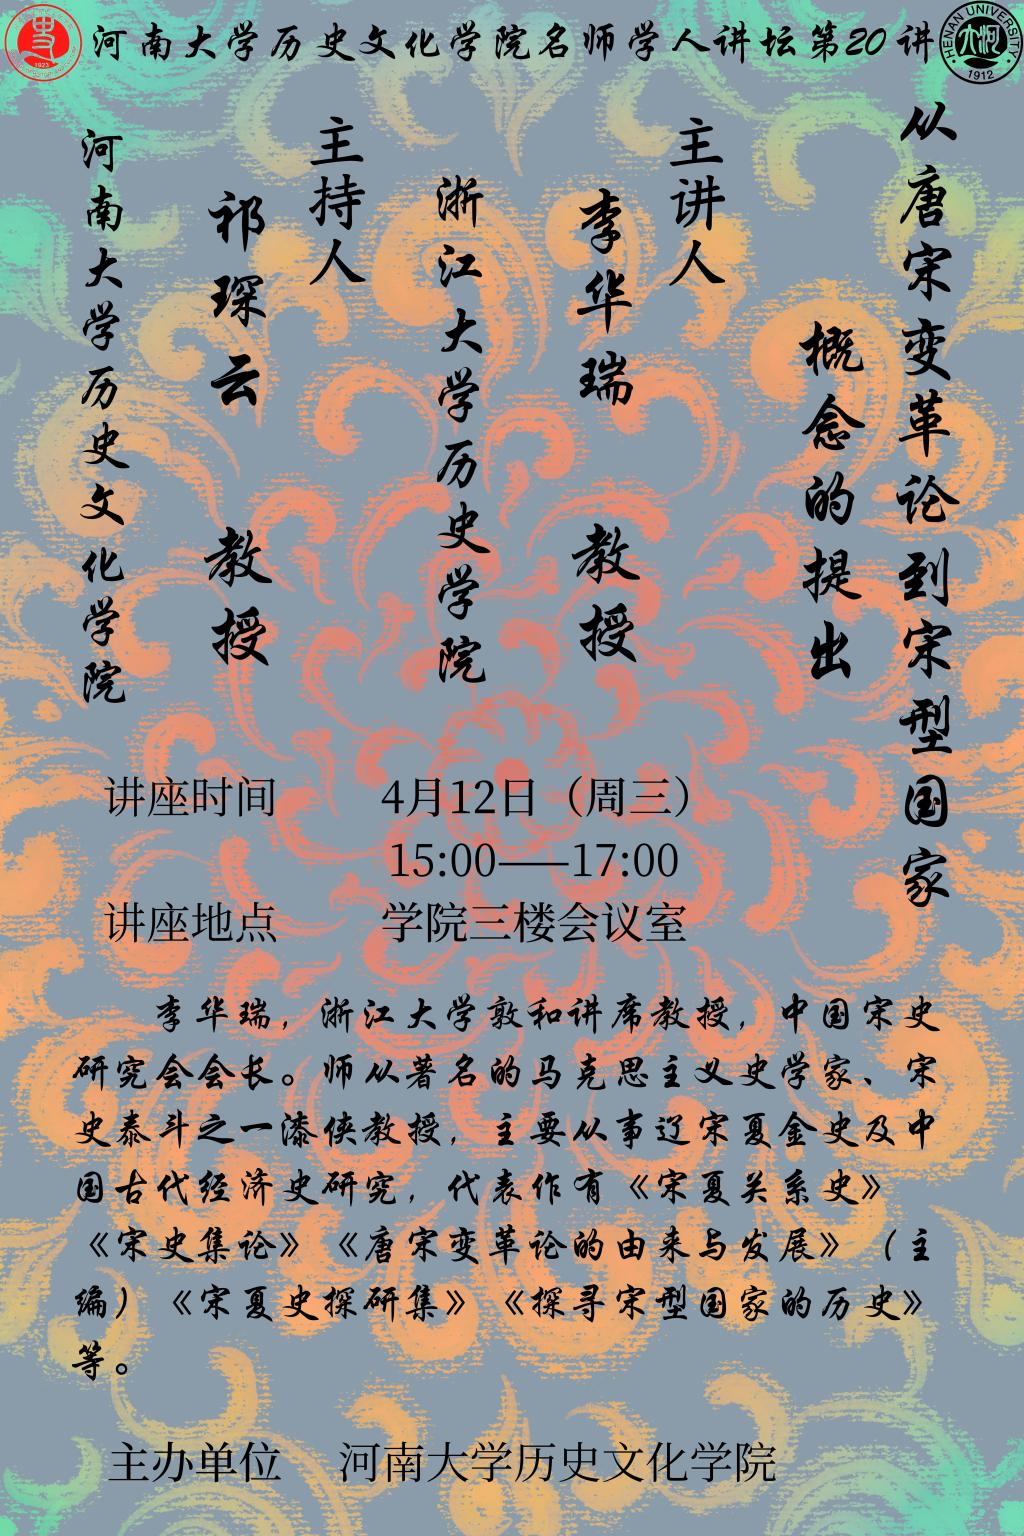 河南大学历史文化学院名师学人讲坛第20讲
HENAN UNIVERSITY
1912
1923
从唐宋变革论到宋型国家
概念的提出
主讲人
李华瑞 教授
浙江大学历史学院
主持人
祁琛云 教授
河南大学历史文化学院
讲座时间 4月12日（周三）
15:00——17:00
讲座地点 学院三楼会议室
李华瑞，浙江大学敦和讲席教授，中国宋史
研究会会长。师从著名的马克思主义史学家、宋
史泰斗之一漆侠教授，主要从事辽宋夏金史及中
国古代经济史研究，代表作有《宋夏关系史》
《宋史集论》《唐宋变革论的由来与发展》（主
编）《宋夏史探研集》《探寻宋型国家的历史》
等。
主办单位 河南大学历史文化学院